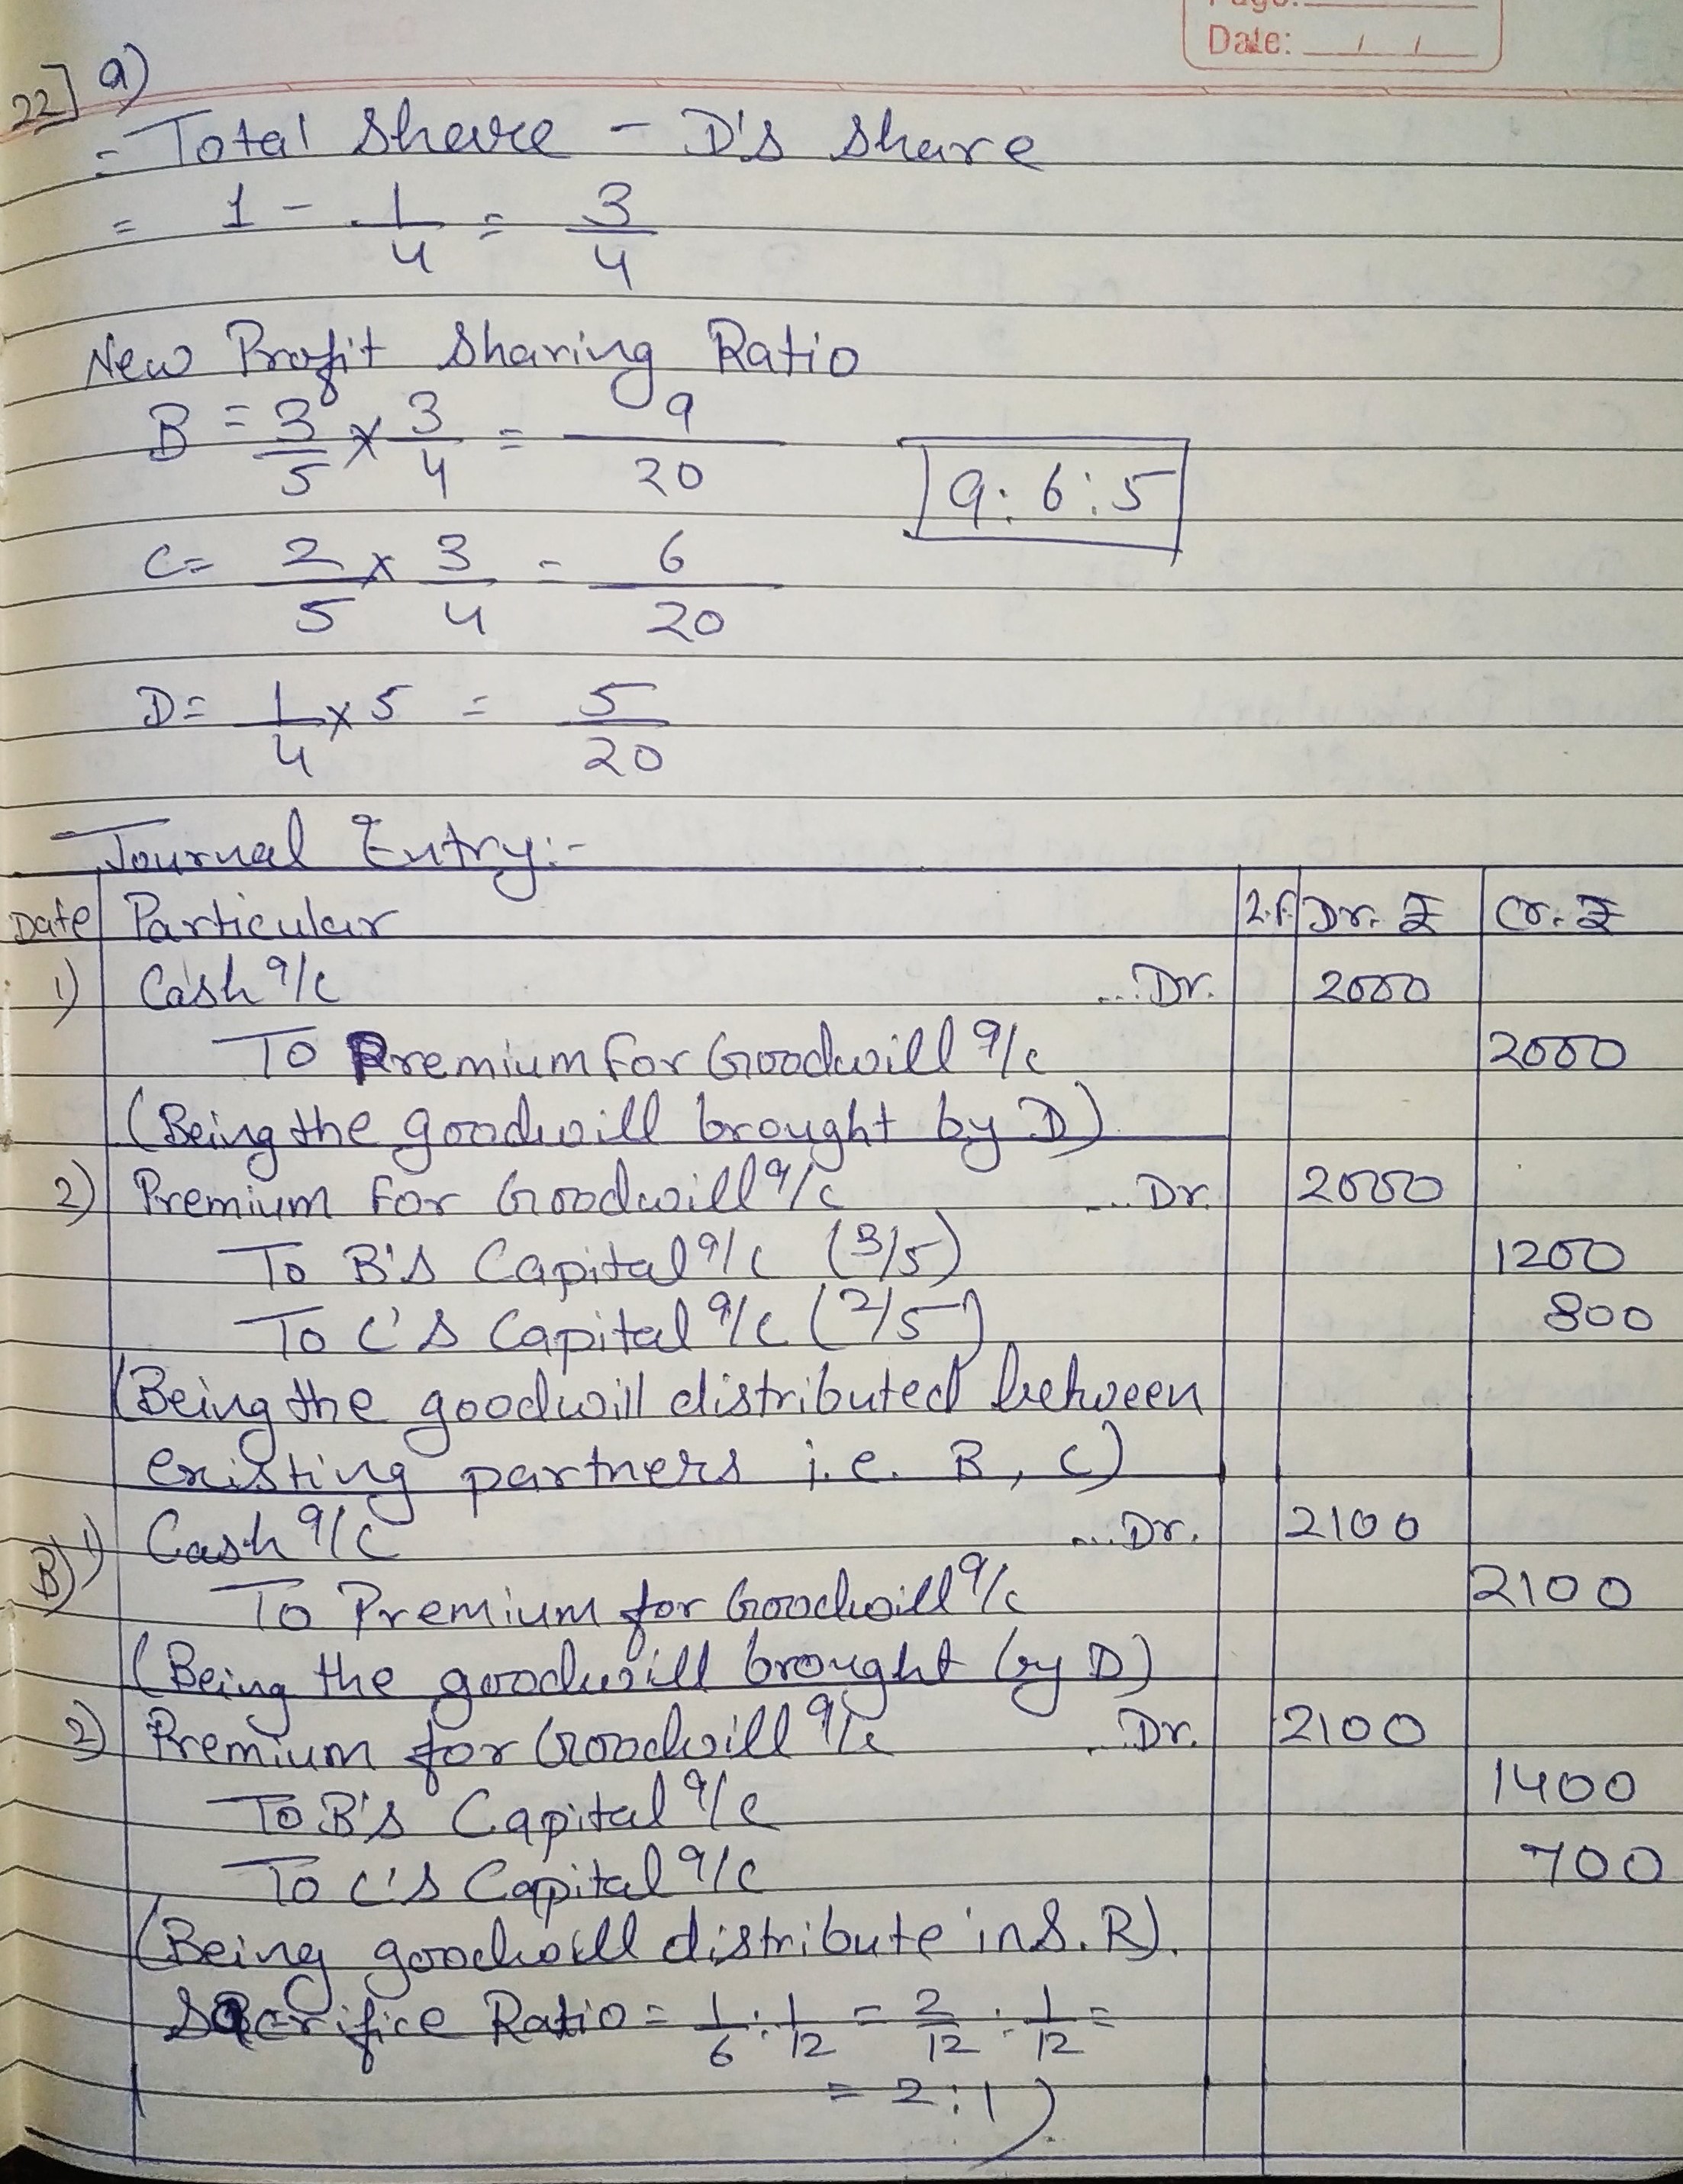 Date: / /
22] a)
= Total Share - D's Share
= 1 - 1/4 = 3/4
New Profit Sharing Ratio
B = 3/5 × 3/4 = 9/20
9:6:5
C = 2/5 × 3/4 = 6/20
D = 1/4 × 5 = 5/20
Journal Entry:-
Date Particular L.F. Dr. ₹ Cr. ₹
1) Cash a/c ...Dr. 2000
To Premium For Goodwill a/c 2000
(Being the goodwill brought by D)
2) Premium For Goodwill a/c ...Dr. 2000
To B's Capital a/c (3/5) 1200
To C's Capital a/c (2/5) 800
(Being the goodwill distributed between
existing partners i.e. B, C)
B) 1) Cash a/c ...Dr. 2100
To Premium for Goodwill a/c 2100
(Being the goodwill brought by D)
2) Premium for Goodwill a/c ..Dr. 2100
To B's Capital a/c 1400
To C's Capital a/c 700
(Being goodwill distribute in S.R).
Sacrifice Ratio = 1/6 : 1/12 = 2/12 : 1/12 =
= 2:1)